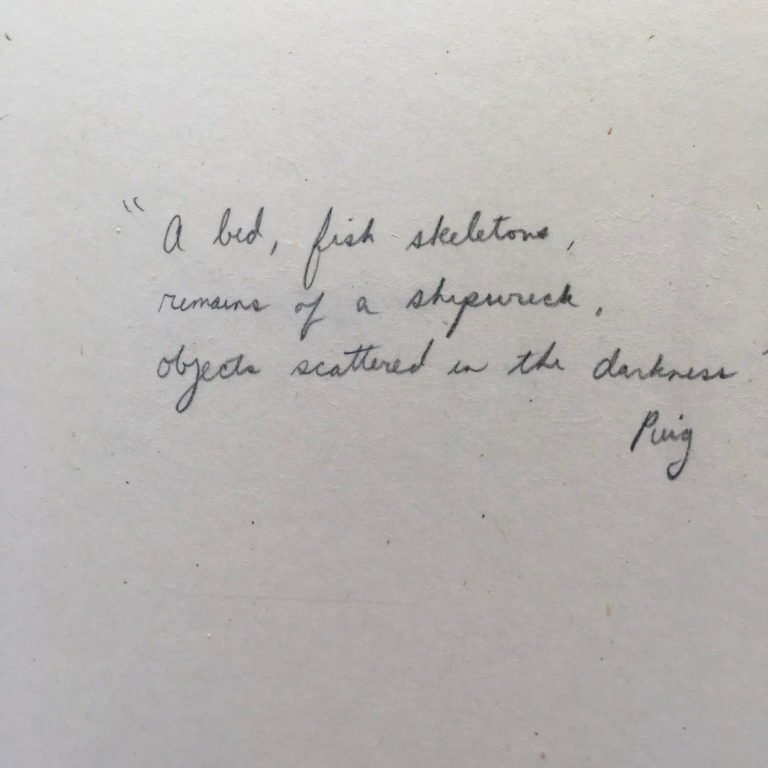 "A bed, fish skeletons,
remains of a shipwreck,
objects scattered in the darkness."
Puig